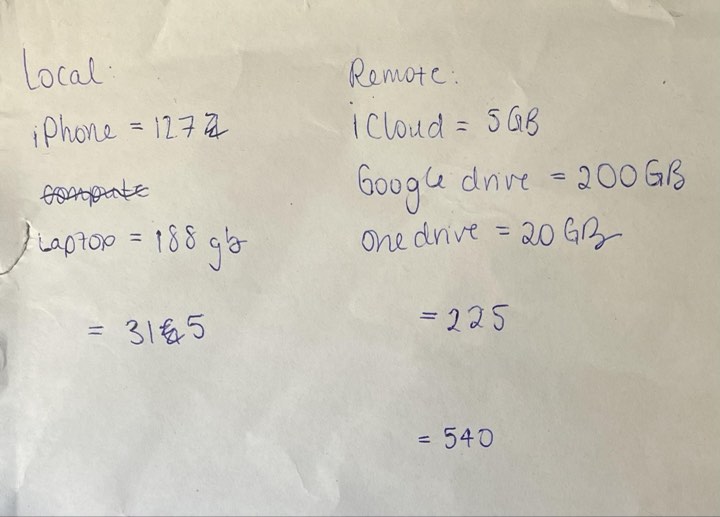 Local:
iPhone = 127
Laptop = 188 gb
= 315
Remote:
iCloud = 5GB
Google drive = 200GB
one drive = 20GB
= 225
= 540